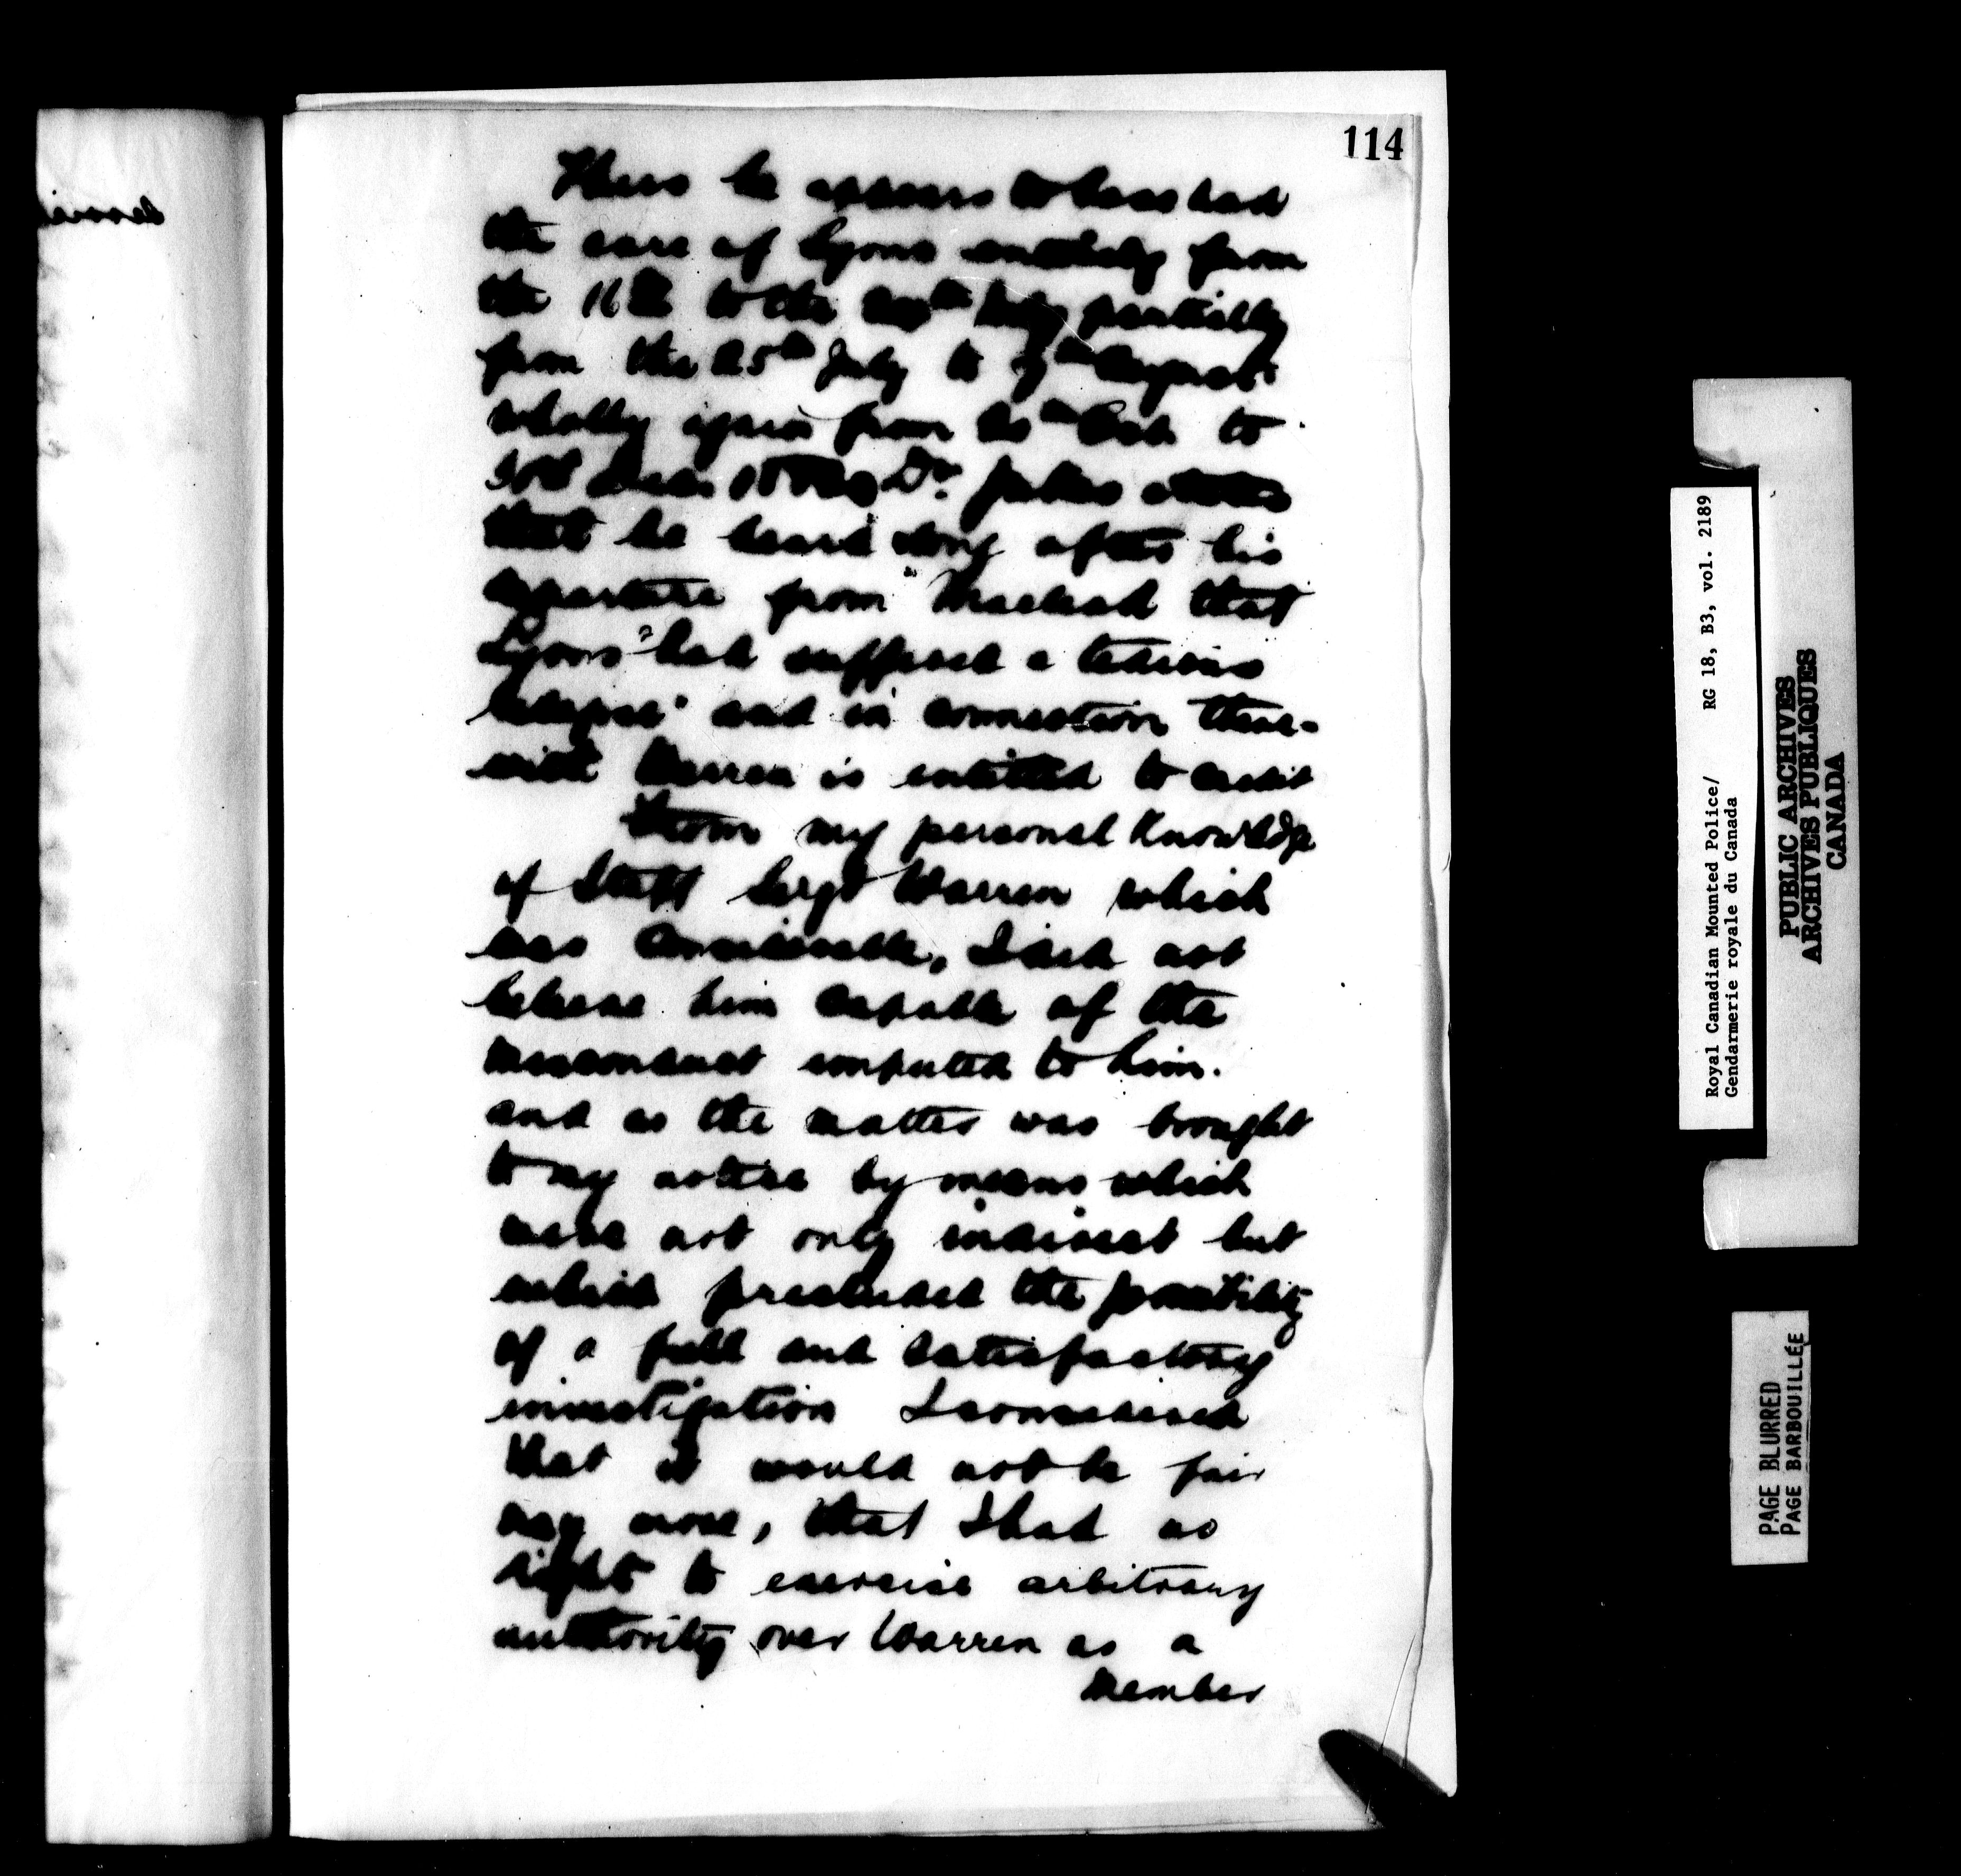 114
Thus he appears to have had
the care of Lyons entirely from
the 16th to the July partially
from the 25th July to 7th August
wholly again from to
Dr. Jukes states
that he heard long after his
departure from Macleod that
Lyons "had suffered a tedious
relapse" and in connection there-
with Warren is entitled to credit
From my personal knowledge
of Staff Sergt Warren which
was considerable, I did not
believe him capable of the
misconduct imputed to him.
and as the matter was brought
to my notice by means which
were not only indirect but
which precluded the possibility
of a full and satisfactory
investigation I considered
that it would not be fair
nay more, that I had no
right to exercise arbitrary
authority over Warren as a
member
Royal Canadian Mounted Police/ RG 18, B3, vol. 2189
Gendarmerie royale du Canada
PUBLIC ARCHIVES
ARCHIVES PUBLIQUES
CANADA
PAGE BLURRED
PAGE BARBOUILLÉE